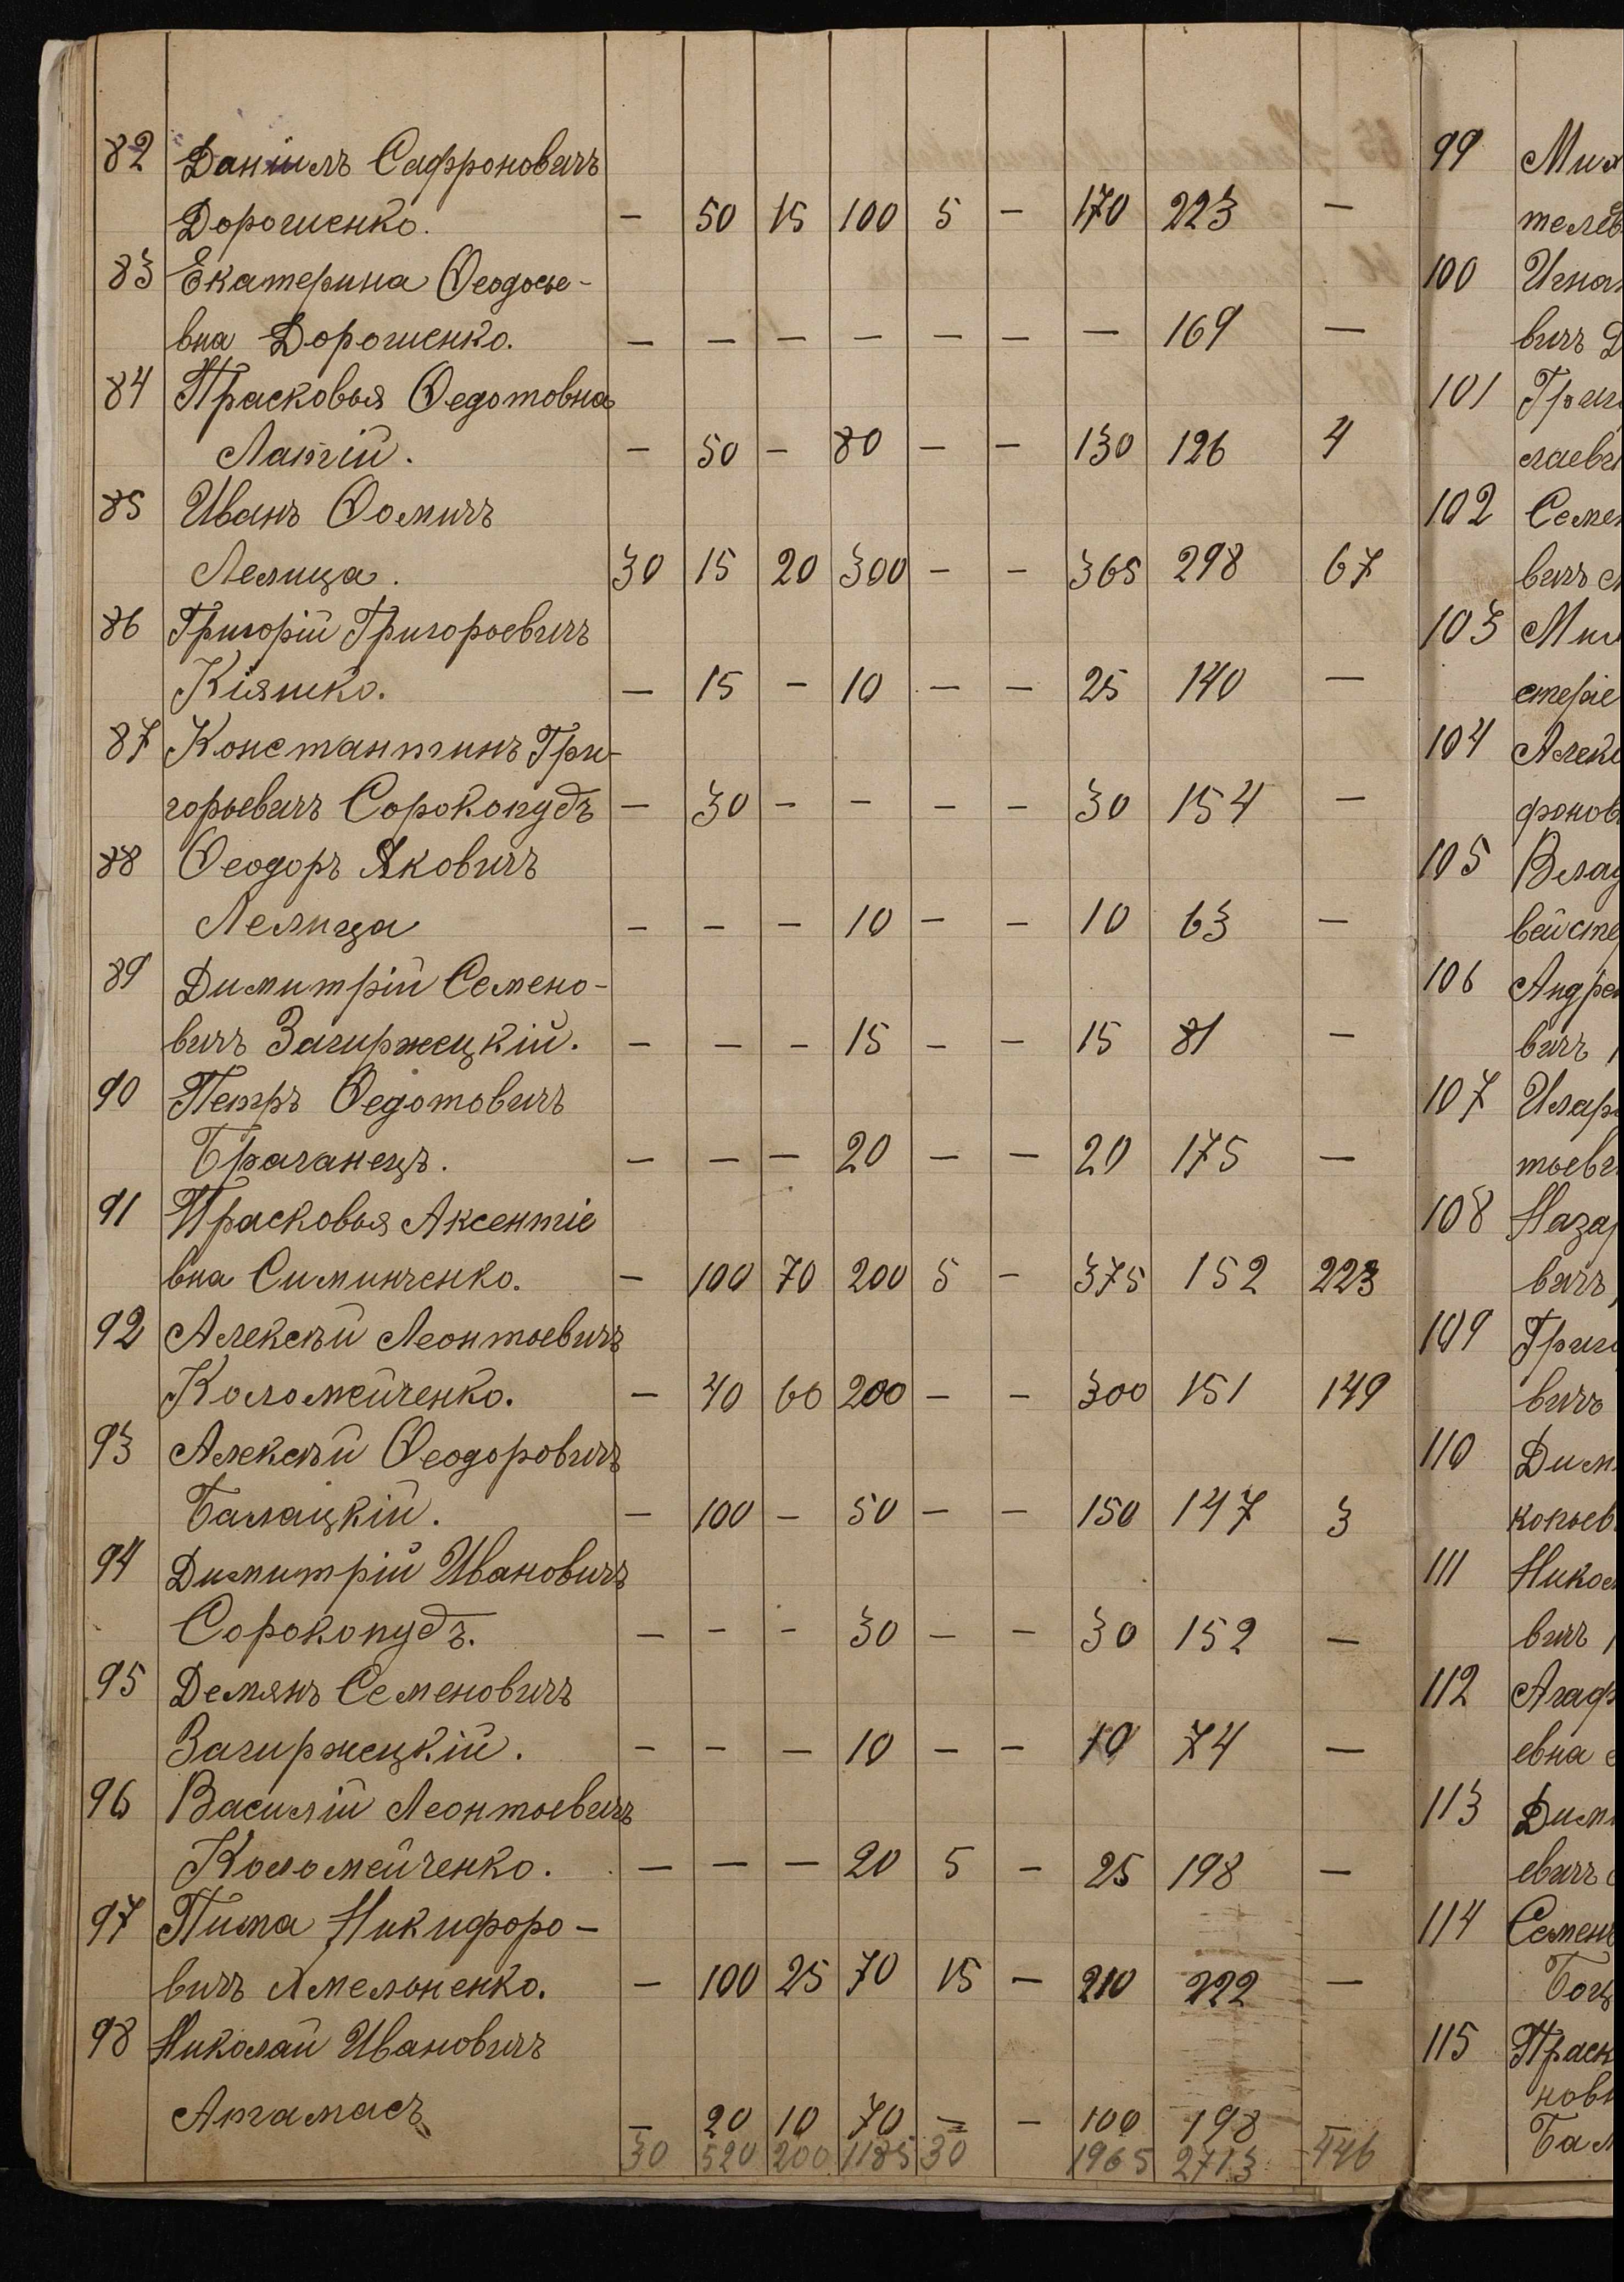 82 Даніилъ Сафроновичъ
Дорошенко. — 50 15 100 5 — 170 223 —
83 Екатерина Ѳеодосье-
вна Дорошенко. — — — — — — — 169 —
84 Прасковья Ѳедотовна
Латій. — 50 — 80 — — 130 126 4
85 Иванъ Ѳомичъ
Лелица. 30 15 20 300 — — 365 298 67
86 Григорій Григорьевичъ
Кіяшко. — 15 — 10 — — 25 140 —
87 Константинъ Гри-
горьевичъ Сорокопудъ — 30 — — — — 30 154 —
88 Ѳеодоръ Яковичъ
Лелица — — — 10 — — 10 63 —
89 Димитрій Семено-
вичъ Загиржецкій. — — — 15 — — 15 81 —
90 Петръ Ѳедотовичъ
Браганецъ. — — — 20 — — 20 175 —
91 Прасковья Аксентіе
вна Симинченко. — 100 70 200 5 — 375 152 223
92 Алексѣй Леонтьевичъ
Коломейченко. — 40 60 200 — — 300 151 149
93 Алексѣй Ѳеодоровичъ
Балацкій. — 100 — 50 — — 150 147 3
94 Димитрій Ивановичъ
Сорокопудъ. — — — 30 — — 30 152 —
95 Демянъ Семеновичъ
Загиржецкій. — — — 10 — — 10 74 —
96 Василій Леонтьевичъ
Коломейченко. — — — 20 5 — 25 198 —
97 Пима Никифоро-
вичъ Амельненко. — 100 25 70 15 — 210 222 —
98 Николай Ивановичъ
Аргамасъ — 20 10 70 — — 100 198 —
30 520 200 1185 30 1965 2713 446
99 Мих
телев
100 Игнат
вичъ Д
101 Григо
лаеви
102 Семен
вичъ
103 Мих
стеріе
104 Алекс
фонов
105 Влад
вейсте
106 Андре
вичъ
107 Илар
тьеви
108 Назар
вичъ
109 Григо
вичъ
110 Дим
копьев
111 Никол
вичъ
112 Агаф
евна
113 Дим
евичъ
114 Семен
Бог
115 Праск
нов
Бал